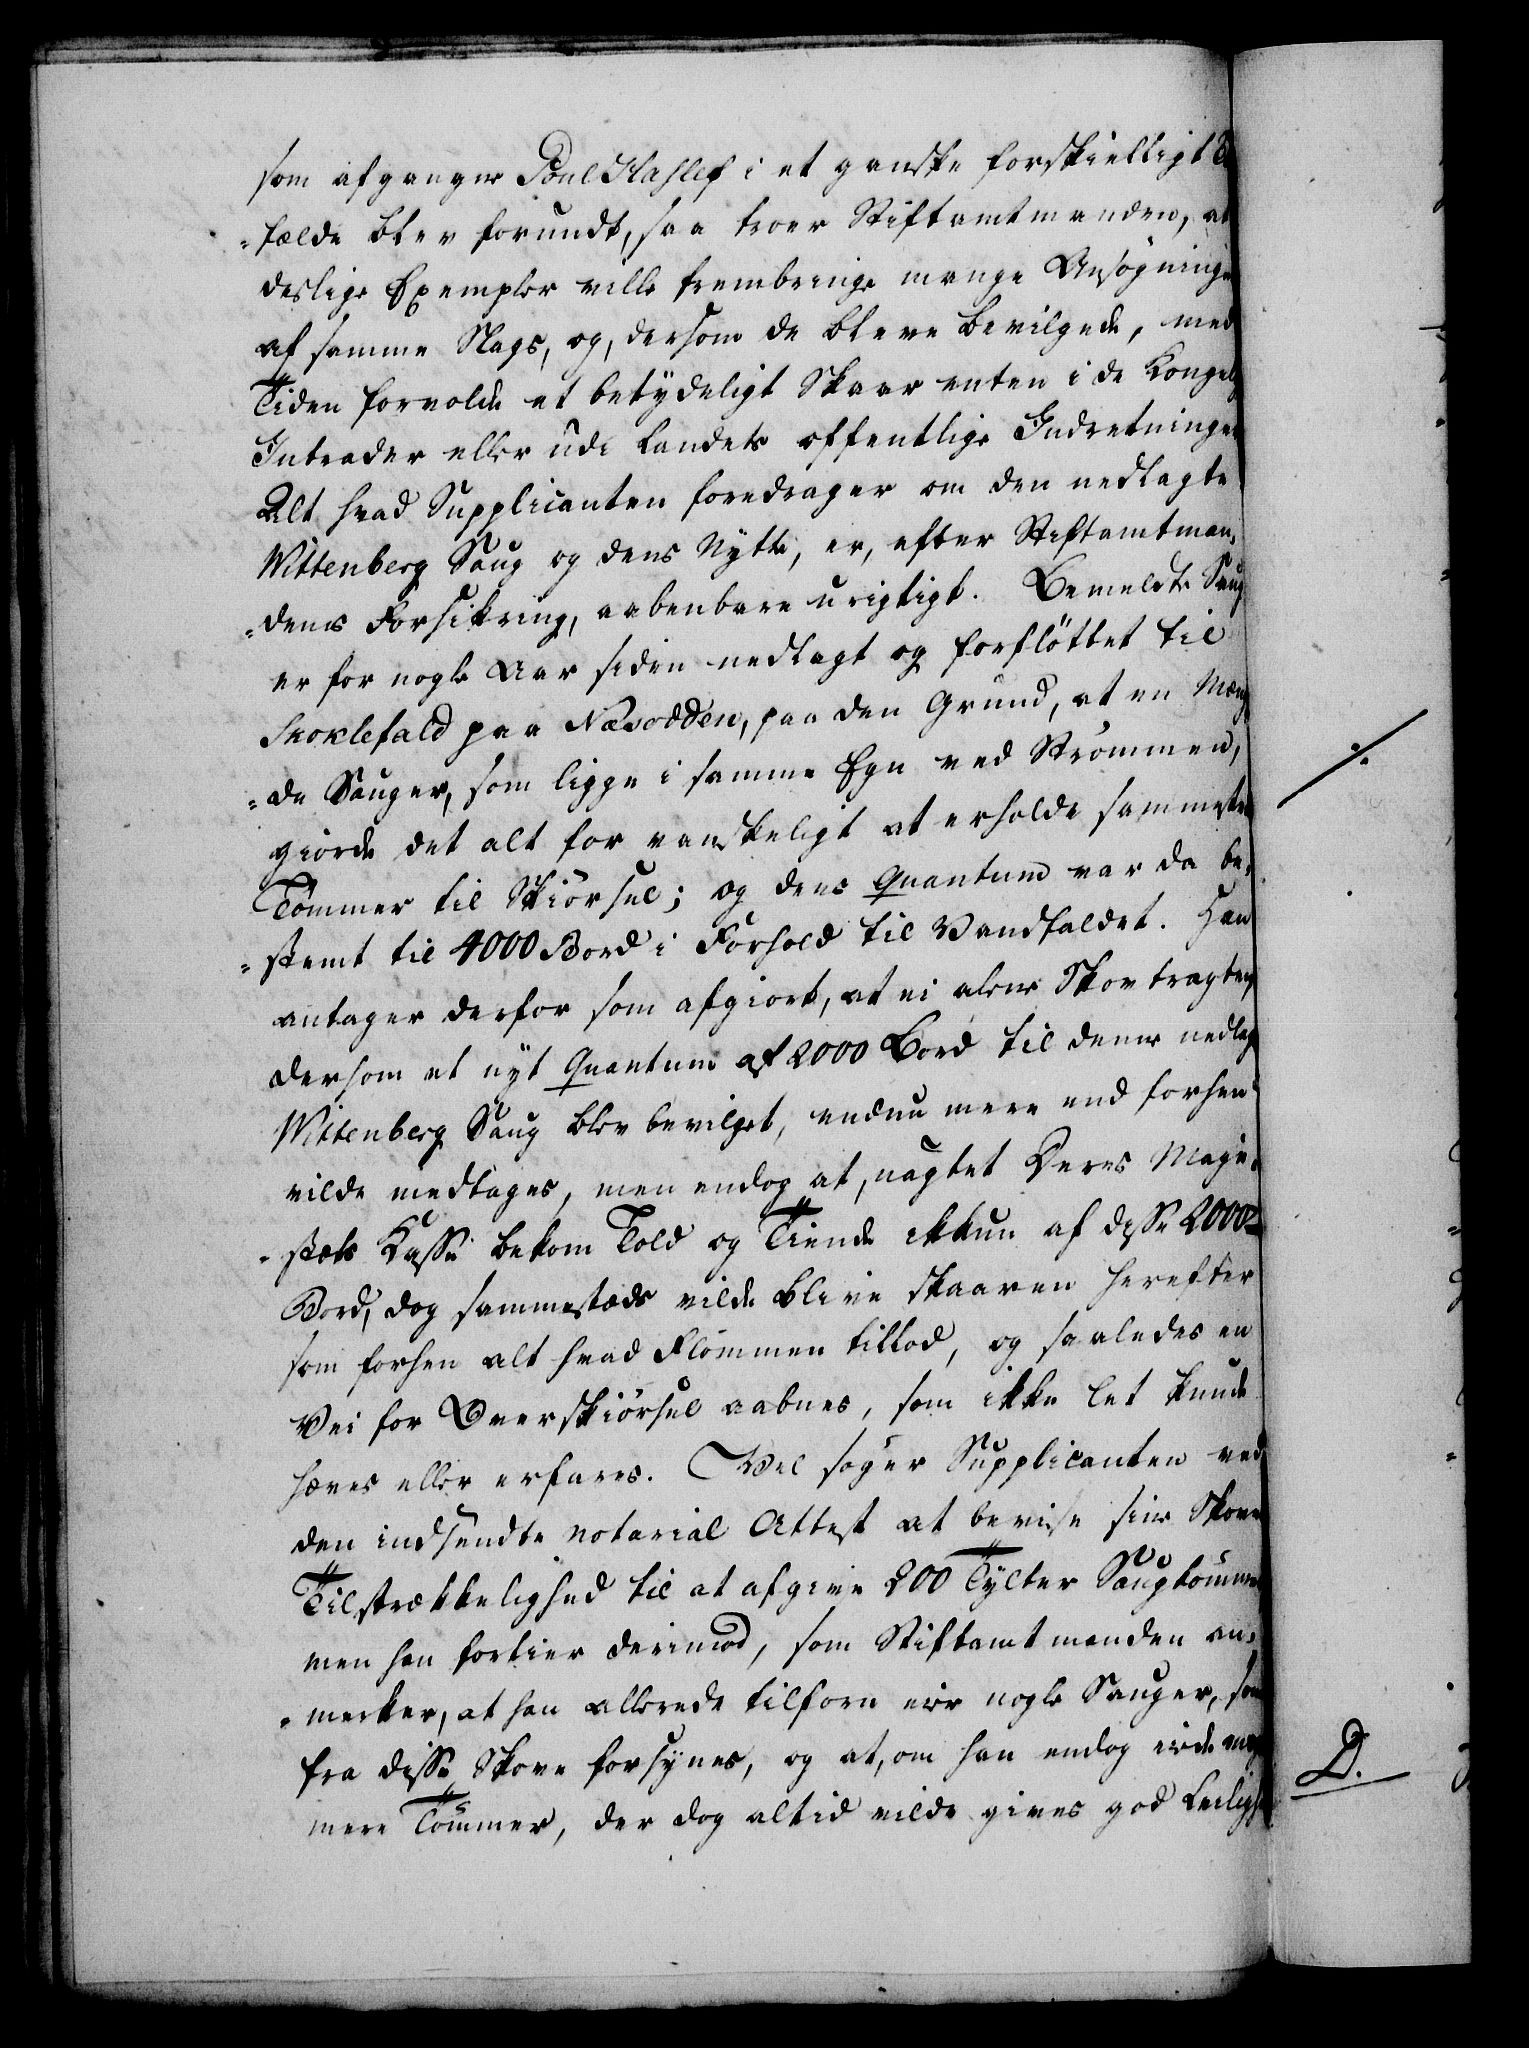 som afgangne Poul Hasles i et ganske forskielligt
„fælde blev forundt, saa troer Stiftamtmanden, at
deslige Exempler ville frembringe mange Ansøgninge
af samme Slags, og, dersom de bleve bevilgede, med
Tiden forvolde et betydeligt Skaar enten i de Kongel
Intrader eller udi Landets offentlige Indretninger
Alt hvad Supplicanten foredrager om den nedlagte
Wittenberg Saug og dens Nytte, er, efter Stiftamtman,
„dens Forsikring, aabenbare urigtigt. Bemeldte Saug
er for nogle Aar siden nedlagt og forfløttet til
Skoklefald paa Næsodden, paa den Grund, at en Mæng
„de Sauger, som ligge i samme Egn ved Strømmen,
giorde det alt for vanskeligt at erholde sammesteds
Tømmer til Skiørsel; og dens Quantum var da be,
„stemt til 4000 Bord i Forhold til Vandfaldet. Han
antager derfor som afgiort, at ei alene Skovtragten
dersom et nyt Quantum af 2000 Bord til denne nedlag
Wittenberg Saug blev bevilget, endnu mere end forhen
vilde medtages, men endog at, uagtet Deres Maje,
„stæts Kasse bekom Told og Tiende ikkun af disse 2000
Bord, dog sammestæds vilde blive skaaren herefter
som forhen alt hvad Flommen tillod, og saaledes en
Vei for Overskiørsel aabnes, som ikke let kunde
hæves eller erfares. Vel søger Supplicanten ved
den indsendte notarial Attest at bevise sine Skove
Tilstrækkelighed til at afgive 200 Tylter Saugtømmer
men han fortier derimod, som Stiftamtmanden an,
„merker, at han allerede tilforn eier nogle Sauger, som
fra disse Skove forsynes, og at, om han endog eiede meg
mere Tømmer, der dog altid vilde gives god Leilighe
D.